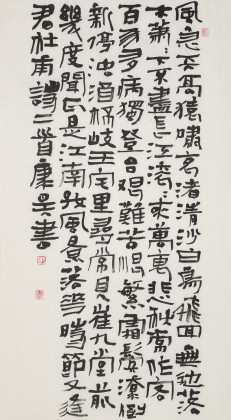 風急天高猿嘯哀渚清沙白鳥飛回無邊落
木蕭〻下不盡長江滾〻來萬里悲秋常作客
百年多病獨登台艱難苦恨繁霜鬢潦倒
新停濁酒杯岐王宅里尋常見崔九堂前
幾度聞正是江南好風景落花時節又逢
君杜甫詩二首康書